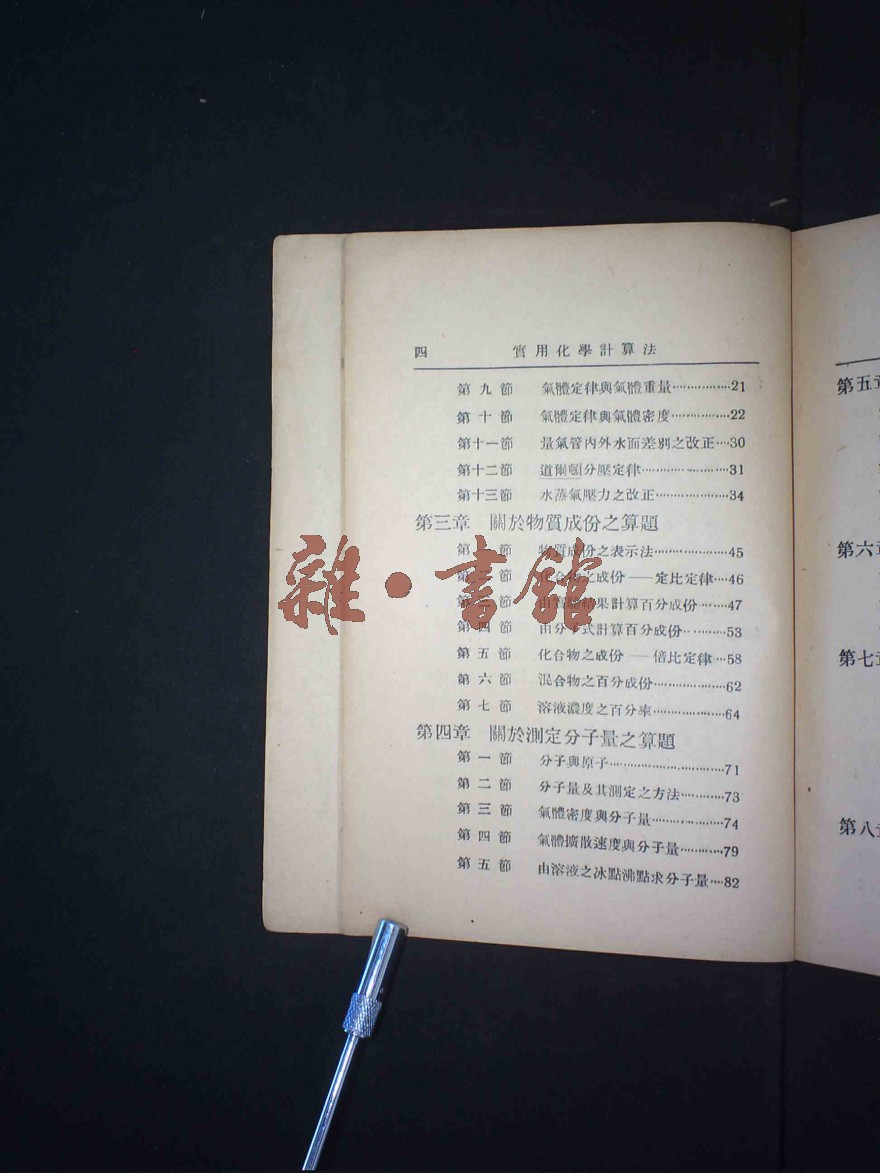 四 實用化學計算法
第九節 氣體定律與氣體重量················21
第十節 氣體定律與氣體密度················22
第十一節 量氣管內外水面差別之改正····30
第十二節 道爾頓分壓定律·······················31
第十三節 水蒸氣壓力之改正···················34
第三章 關於物質成份之算題
第一節 物質成份之表示法····················45
第二節 化合物之成份——定比定律····46
第三節 由實驗結果計算百分成份········47
第四節 由分子式計算百分成份············53
第五節 化合物之成份——倍比定律····58
第六節 混合物之百分成份····················62
第七節 溶液濃度之百分率····················64
第四章 關於測定分子量之算題
第一節 分子與原子································71
第二節 分子量及其測定之方法············73
第三節 氣體密度與分子量····················74
第四節 氣體擴散速度與分子量············79
第五節 由溶液之冰點沸點求分子量····82
雜·書館
第五章
第六章
第七章
第八章